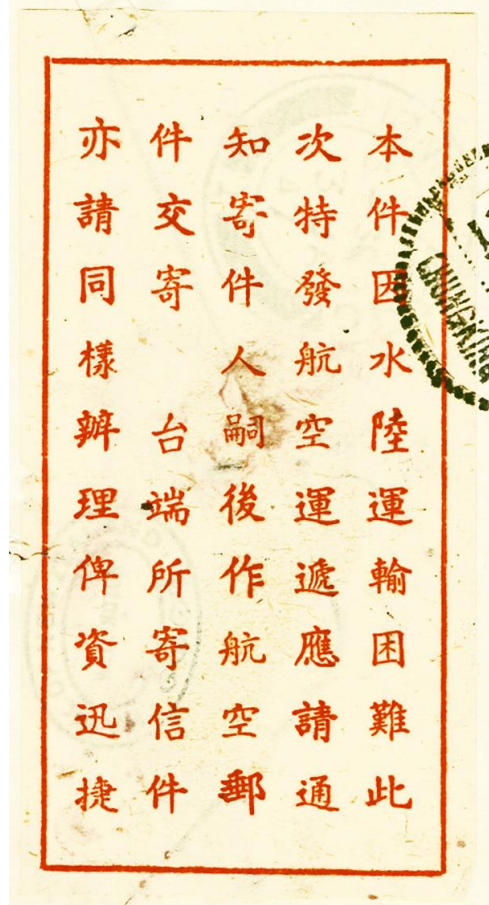 本件因水陸運輸困難此
次特發航空運遞應請通
知寄件人嗣後作航空郵
件交寄 台端所寄信件
亦請同樣辦理俾資迅捷
CHUNGKING